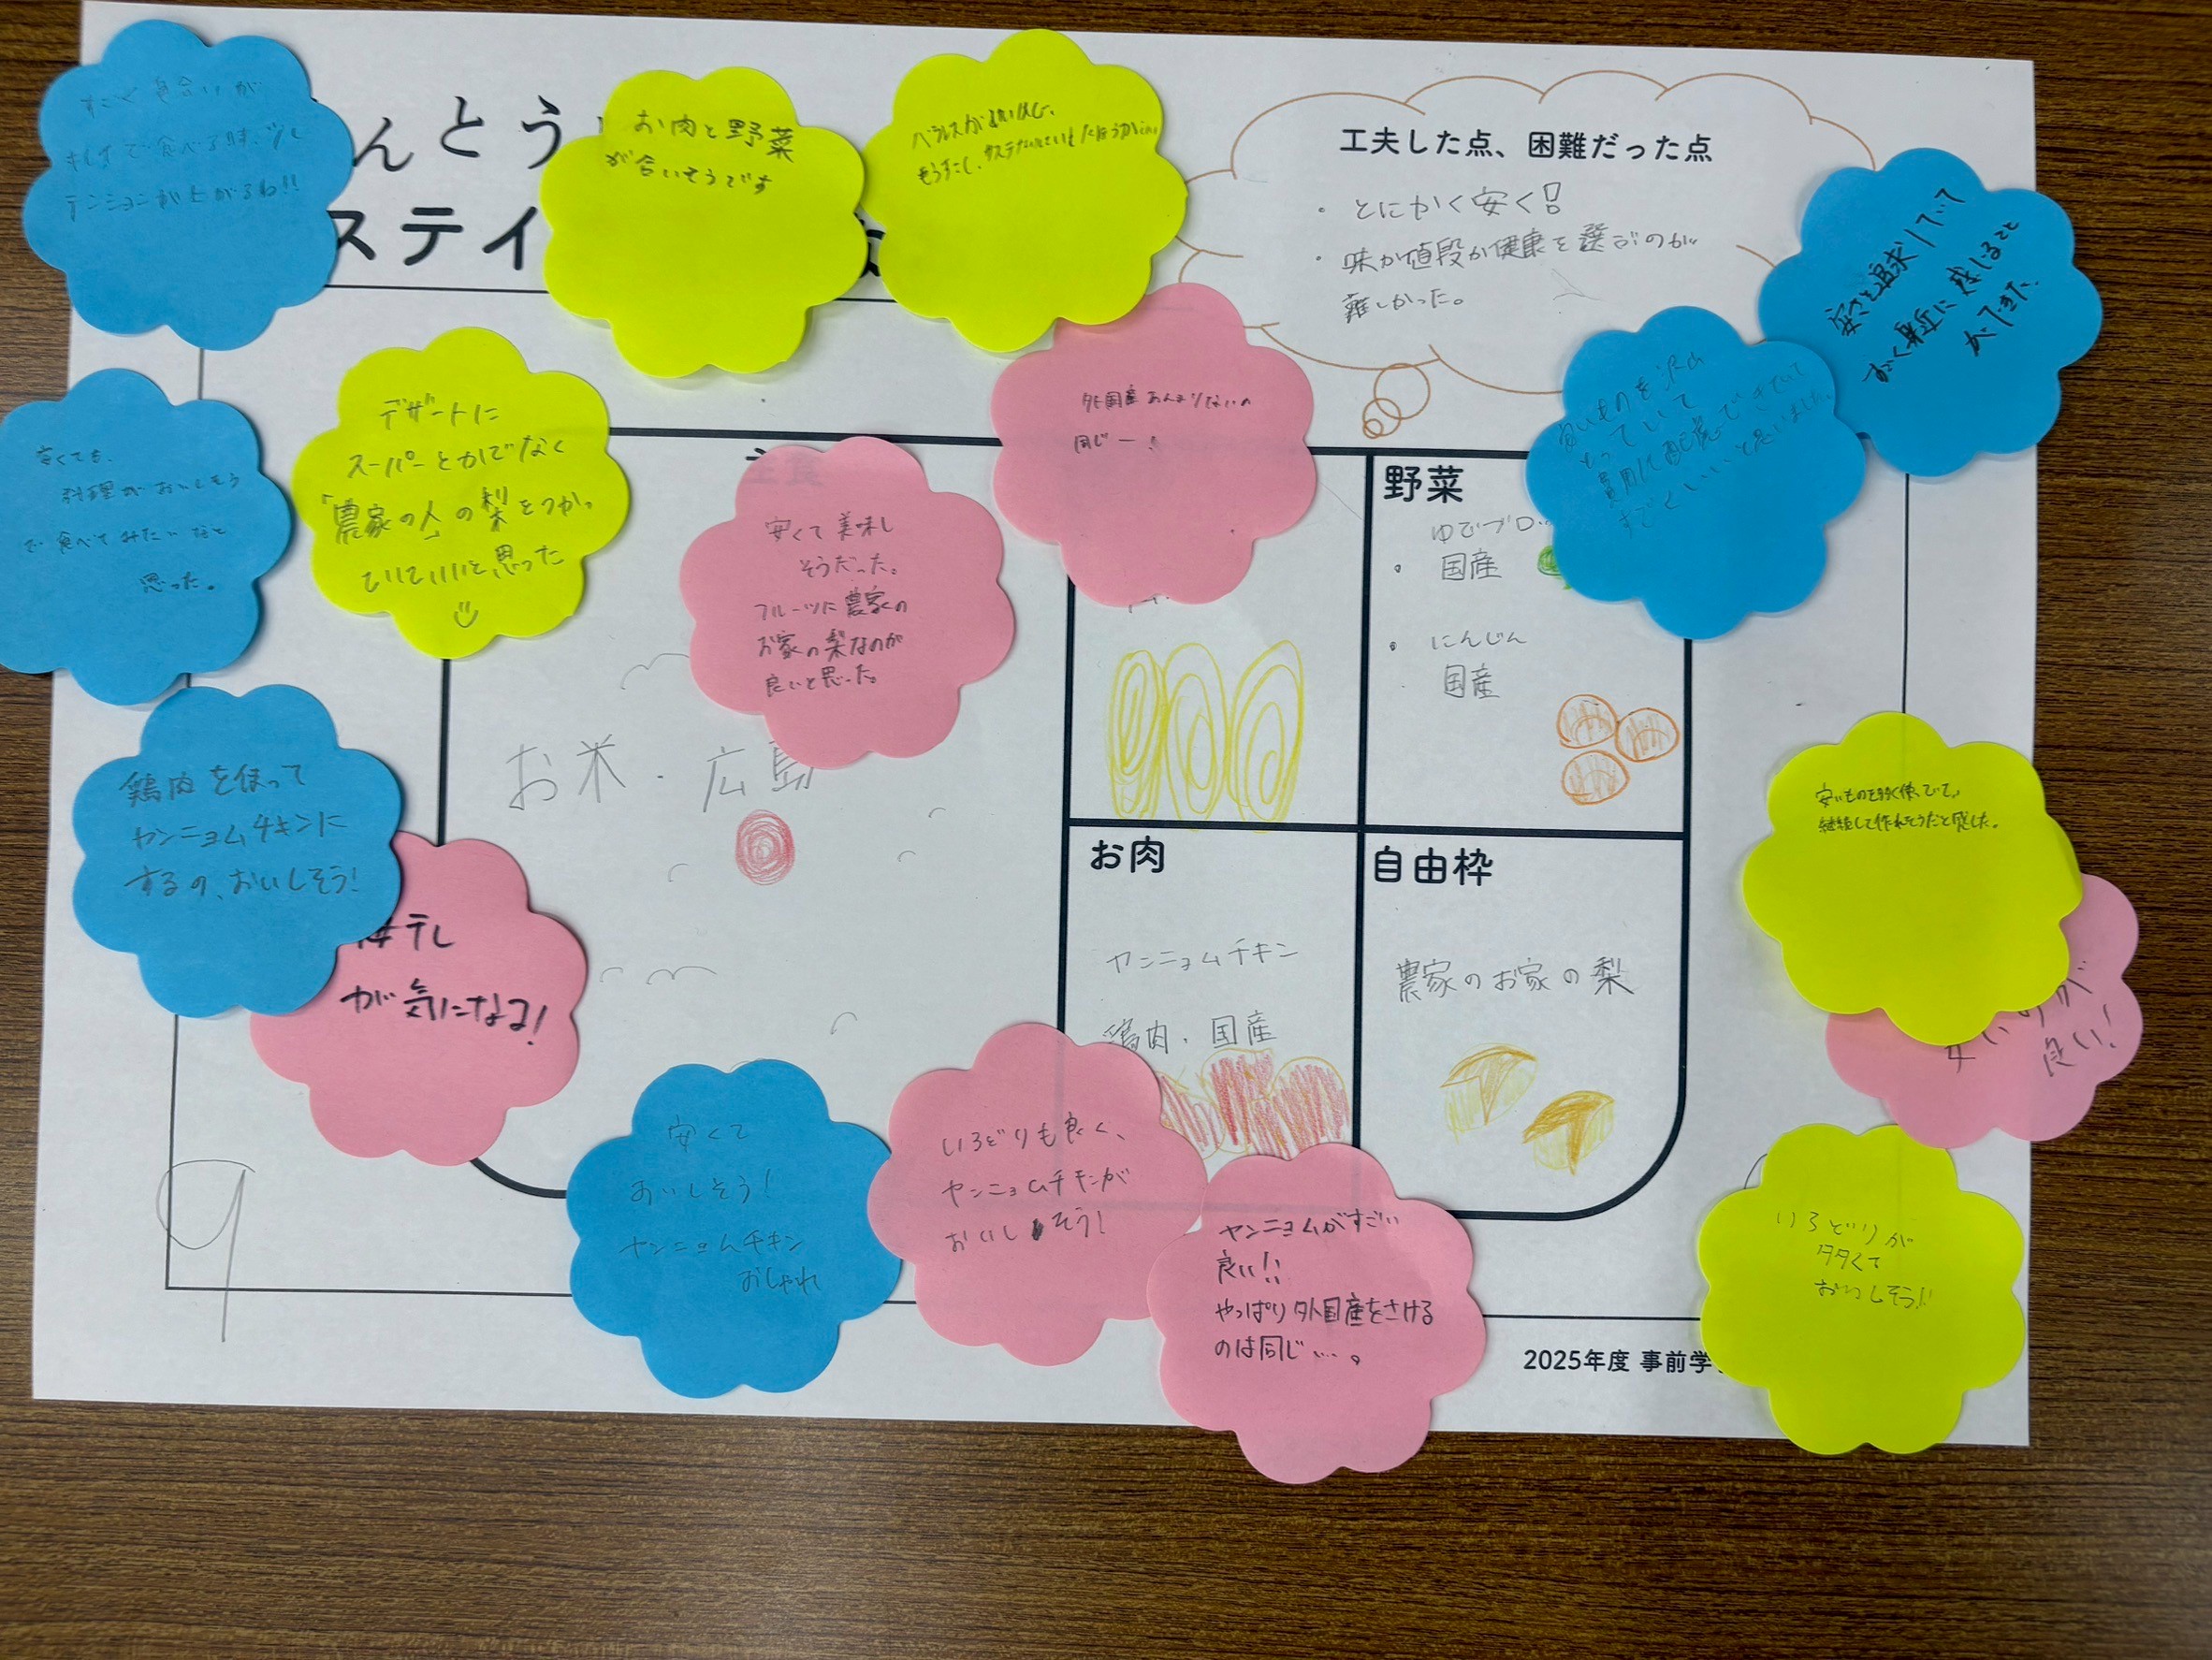 すごく色合いが
テンションが上がるね!!
んとう
ステイ
お肉と野菜
が合いそうです
工夫した点、困難だった点
・とにかく安く!
・味か値段か健康を選ぶのが
難しかった。
安さを追求していて
すごく身近に感じること
ができた。
安いものを沢山
とっていて
費用に配慮できていて
すごくいいと思いました。
外国産あんまりないの
同じー!
安くても、
料理がおいしそう
で食べてみたいなと
思った。
デザートに
スーパーとかでなく
「農家の人」の梨をつかっ
ていていいと思った
主食
安くて美味し
そうだった。
フルーツに農家の
お家の梨なのが
良いと思った。
お米・広島
野菜
ゆでブロ
・国産
・にんじん
国産
安いものを多く使っていて、
継続して作れそうだと感じた。
が
良い!
鶏肉を使って
ヤンニョムチキンに
するの、おいしそう!
干し
が気になる!
お肉
ヤンニョムチキン
鶏肉・国産
自由枠
農家のお家の梨
安くて
おいしそう!
ヤンニョムチキン
おしゃれ
いろどりも良く、
ヤンニョムチキンが
おいしそう!
ヤンニョムがすごい
良い!!
やっぱり外国産をさける
のは同じ…。
いろどりが
多くて
おいしそう!!
9
2025年度 事前学